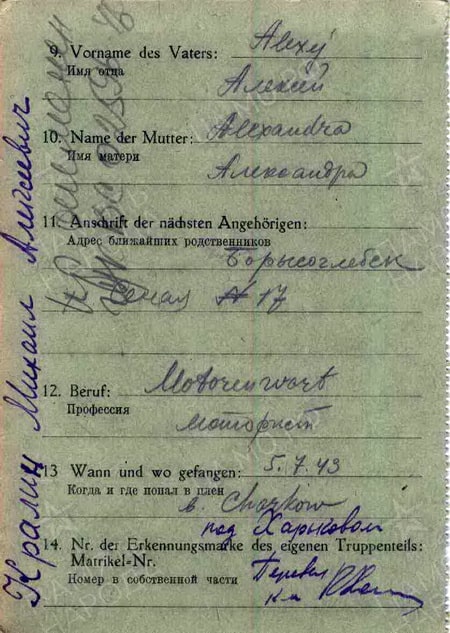 9. Vorname des Vaters: Alexij
Имя отца
Алексей
10. Name der Mutter: Alexandra
Имя матери
Александра
11. Anschrift der nächsten Angehörigen:
Адрес ближайших родственников
Борысоглебск
N 17
12. Beruf: Motorenwart
Профессия
моторист
13 Wann und wo gefangen: 5.7.43
Когда и где попал в плен
b. Charkow
под Харьковом
14. Nr. der Erkennungsmarke des eigenen Truppenteils:
Matrikel=Nr.
Номер в собственной части
Перевел
Кралин Михаил Алексеевич